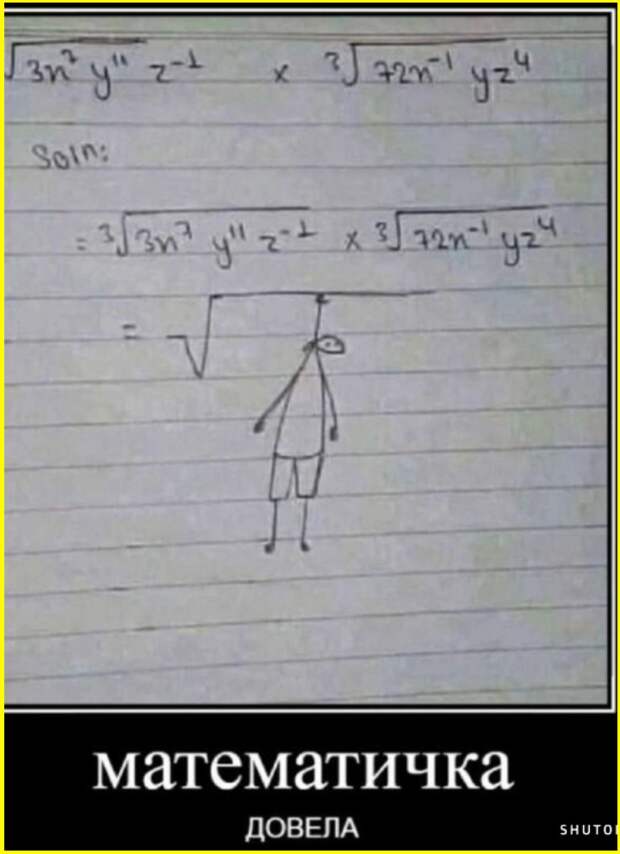 √3n⁷ y¹¹ z⁻¹ × ³√72n⁻¹ yz⁴
Soln:
= ³√3n⁷ y¹¹ z⁻¹ × ³√72n⁻¹ yz⁴
= √
математичка
ДОВЕЛА